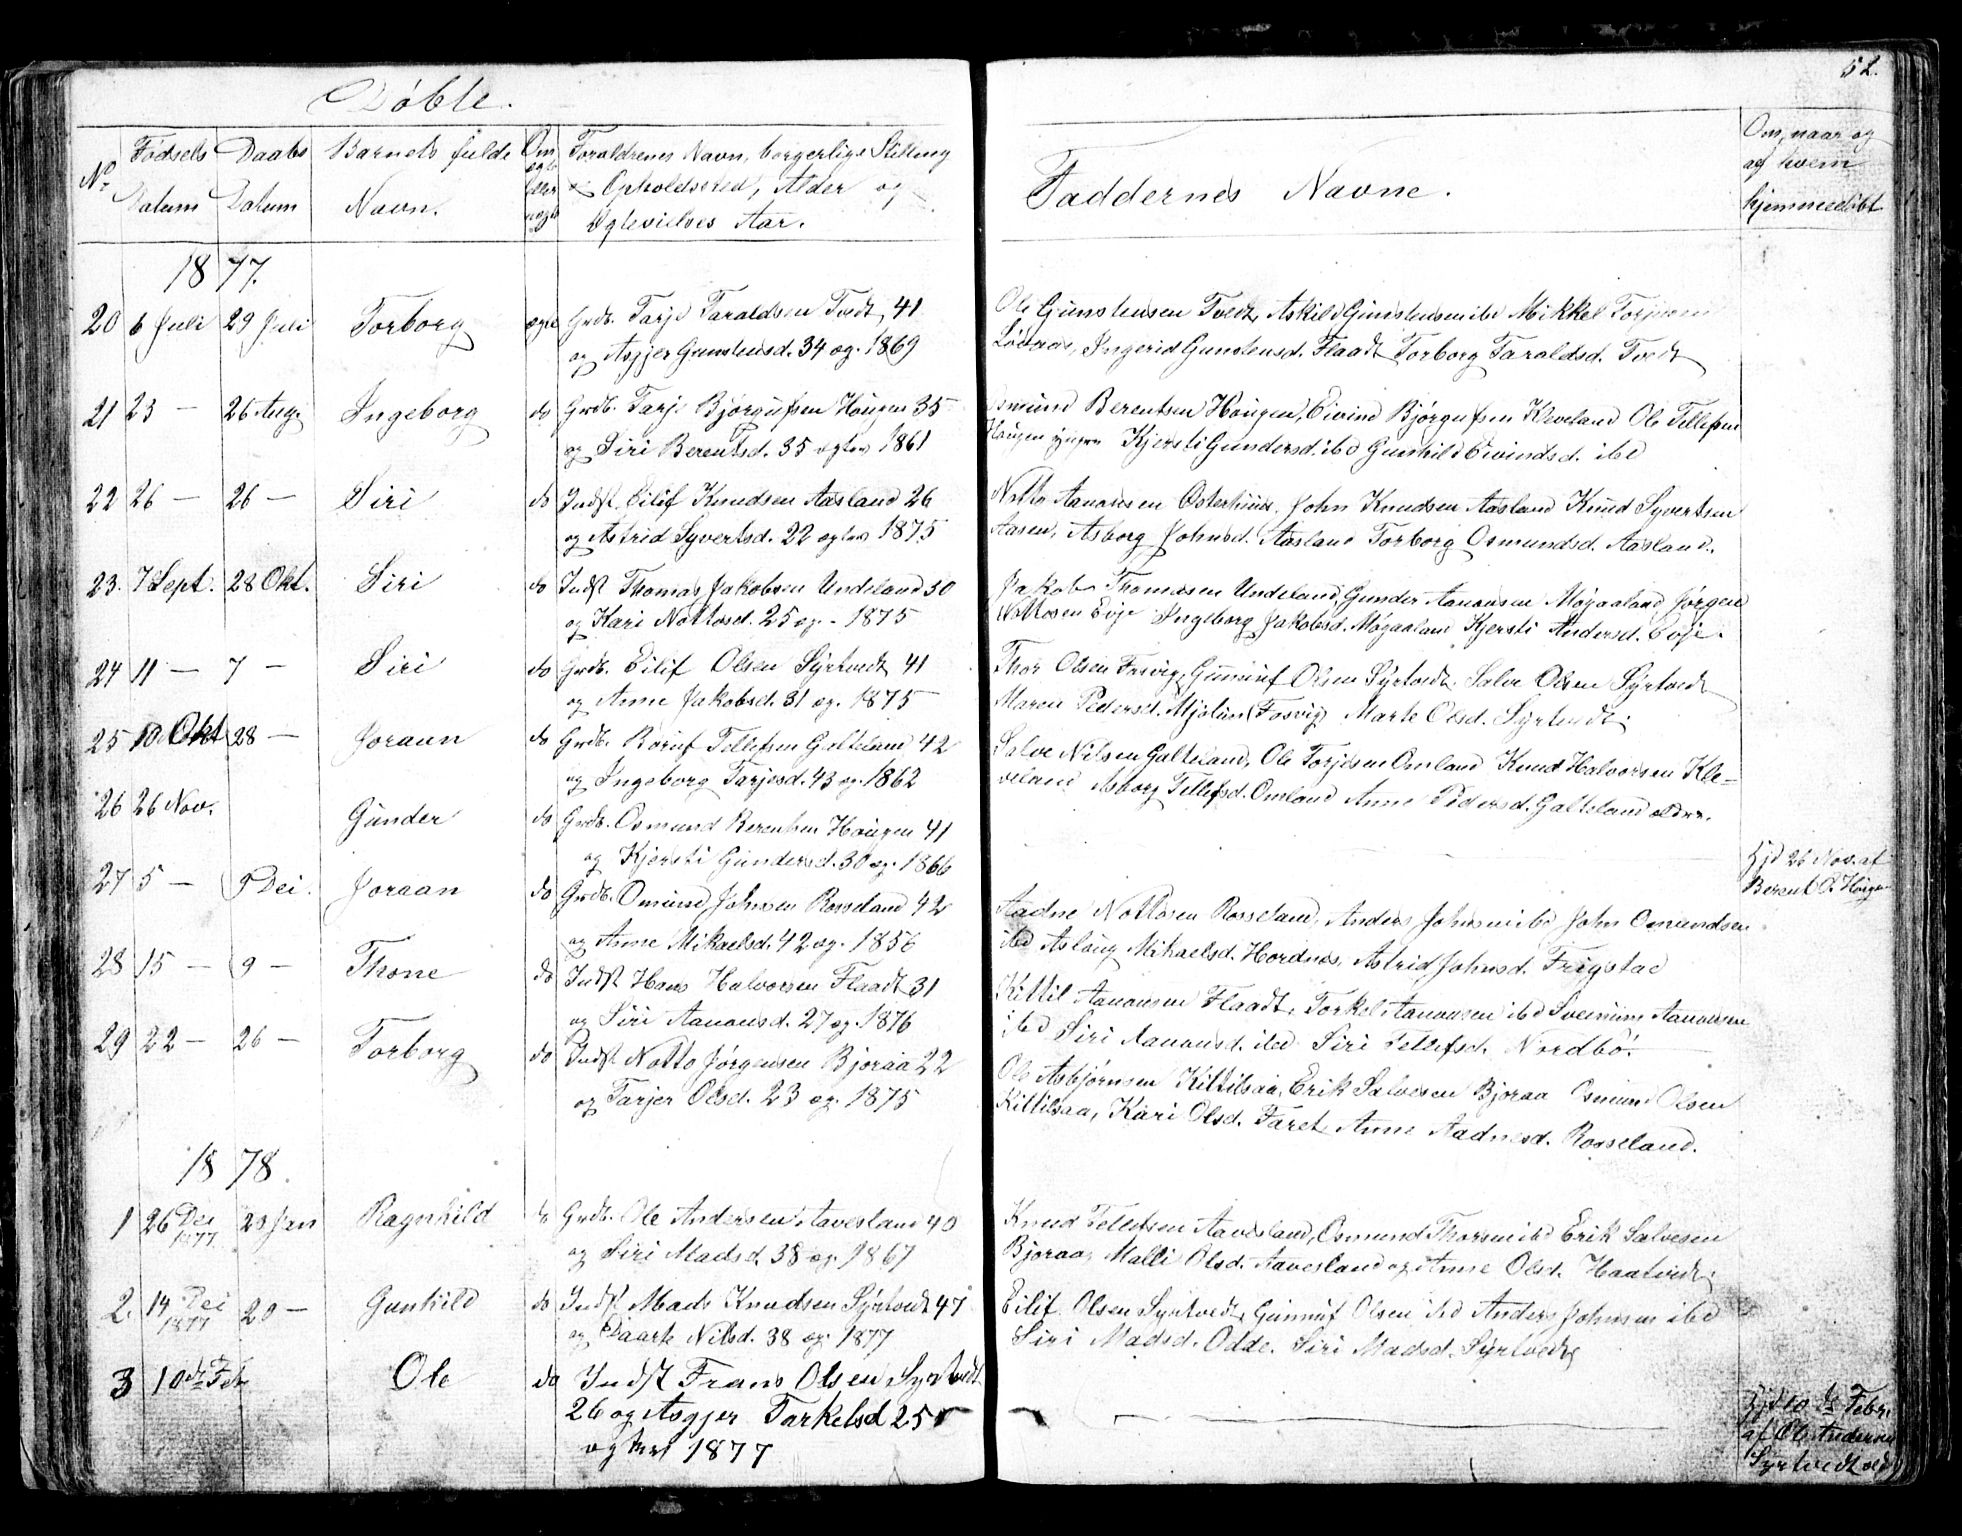 Döbte.
52.
No Födsels Datum Daabs Datum Barnets fulde Navn. Om ægte eller uægt Foraldrenes Navn, borgerlige Stilling
og Opholdssted, Alder og
Ægtevielses Aar.
Faddernes Navne.
Om, naar og
af hvem
hjemmedöbt
1877.
20 6 Juli 29 Juli Torborg ægte Grdb. Tarje Taraldsen Tvedt, 41
og Asgjer Gunstensd. 34 og. 1869
Ole Gunstensen Tvedt, Askild Gunstensen ibd Mikkel Torjusen
Lövaas, Ingerid Gunstensd. Flaadt Torborg Taraldsd. Tvedt
21 23 — 26 Aug. Ingeborg do Grdb. Tarje Bjørgufsen Hougen 35
og Siri Berentsd. 35 egtev 1861
Osmund Berentsen Hougen, Eivind Bjørgufsen Kleveland Ole Tellefsen
Hougen yngre Kjersti Gundersd. ibd Gunhild Eivindsd. ibd
22 26 — 26 — Siri do Indst Eilif Knudsen Aasland 26
og Astrid Syvertsd. 22 egtev 1875
Notto Aanonsen Osterhuus, John Knudsen Aasland Knud Syvertsen
Aasen, Asborg Johnsd. Aasland Torborg Osmundsd. Aasland.
23. 7 Sept. 28 Okt. Siri do Indst Thomas Jakobsen Undeland 30
og Kari Nottosd. 25 og - 1875
Jakob Thomassen Undeland, Gunder Aanonsen Møgaaland, Jørgen
Nottosen Evje Ingeborg Jakobsd. Møgaaland Kjersti Andersd. Evje.
24 11 — 7 — Siri do Grdb. Eilif Olsen Syrtvedt 41
og Anne Jakobsd. 31 og. 1875
Thor Olsen Fosvig, Gunnuf Olsen Syrtvedt, Salve Olsen Syrtvedt
Maren Pedersd. Mjolun (Fosvig) Marte Olsd. Syrtvedt.
25 10 Okt 28 — Joraun do Grdb. Roruf Tellefsen Galteland 42
og Ingeborg Tarjesd. 43 og. 1862
Salve Nilsen Galteland, Ole Torjusen Omland Knud Halvorsen Kle-
veland Asborg Tellefsd. Omland Anne Pedersd. Galteland ældre.
26 26 Nov. Gunder do Grdb. Osmund Berentsen Hougen 41
og Kjersti Gundersd. 30 og. 1866
Hjd 26 Nov. af
Berent O. Hougen
27 5 — 9 Dei. Joraan do Grdb. Omund Johnsen Rosseland 42
og Anne Mikaelsd. 42 og. 1856
Aadne Nottosen Rosseland, Anders Johnsen ibd John Omundsen
ibd Aslaug Mikaelsd. Hordnes, Astrid Johnsd. Frigstad
28 15 — 9 — Thone do Indst Hans Halvorsen Flaadt 31
og Siri Aanonsd. 27 og. 1876
Kittil Aanonsen Flaadt, Torkel Aanonsen ibd Sveinum Aanonsen
ibd Siri Aanonsd. ibd Siri Tellefsd. Nordbö.
29 22 — 26 — Torborg do Indst Notto Jørgensen Bjoraa 22
og Tarjer Olsd. 23 og. 1875
Ole Asbjørnsen Kittilsaa, Erik Salvesen Bjoraa Osmund Olsen
Kittilsaa, Kari Olsd. Faret Anne Aadnesd. Rosseland.
1878.
1 26 Dei 1877 20 Jan Ragnhild do Grdb. Ole Andersen Aavesland 40
og Siri Madsd. 38 og. 1867
Knud Tellefsen Aavesland, Osmund Thorsen ibd Erik Salvesen
Bjoraa, Malli Olsd. Aavesland og Anne Olsd. Haatvedt.
2. 14 Dei 1877 20 — Gunhild do Indst Mads Knudsen Syrtvedt 47
og Paarte Nilsd. 38 og. 1877
Eilif Olsen Syrtvedt, Gunnuf Olsen ibd Anders Johnsen ibd
Siri Madsd. Odde. Siri Madsd. Syrtvedt
3 10de Feb Ole do Indst Frans Olsen Syrtvedt
26 og Asgjer Tarkelsd 25
1877
Hjd 10 de Febr.
af Ole Andersen
Syrtvedt